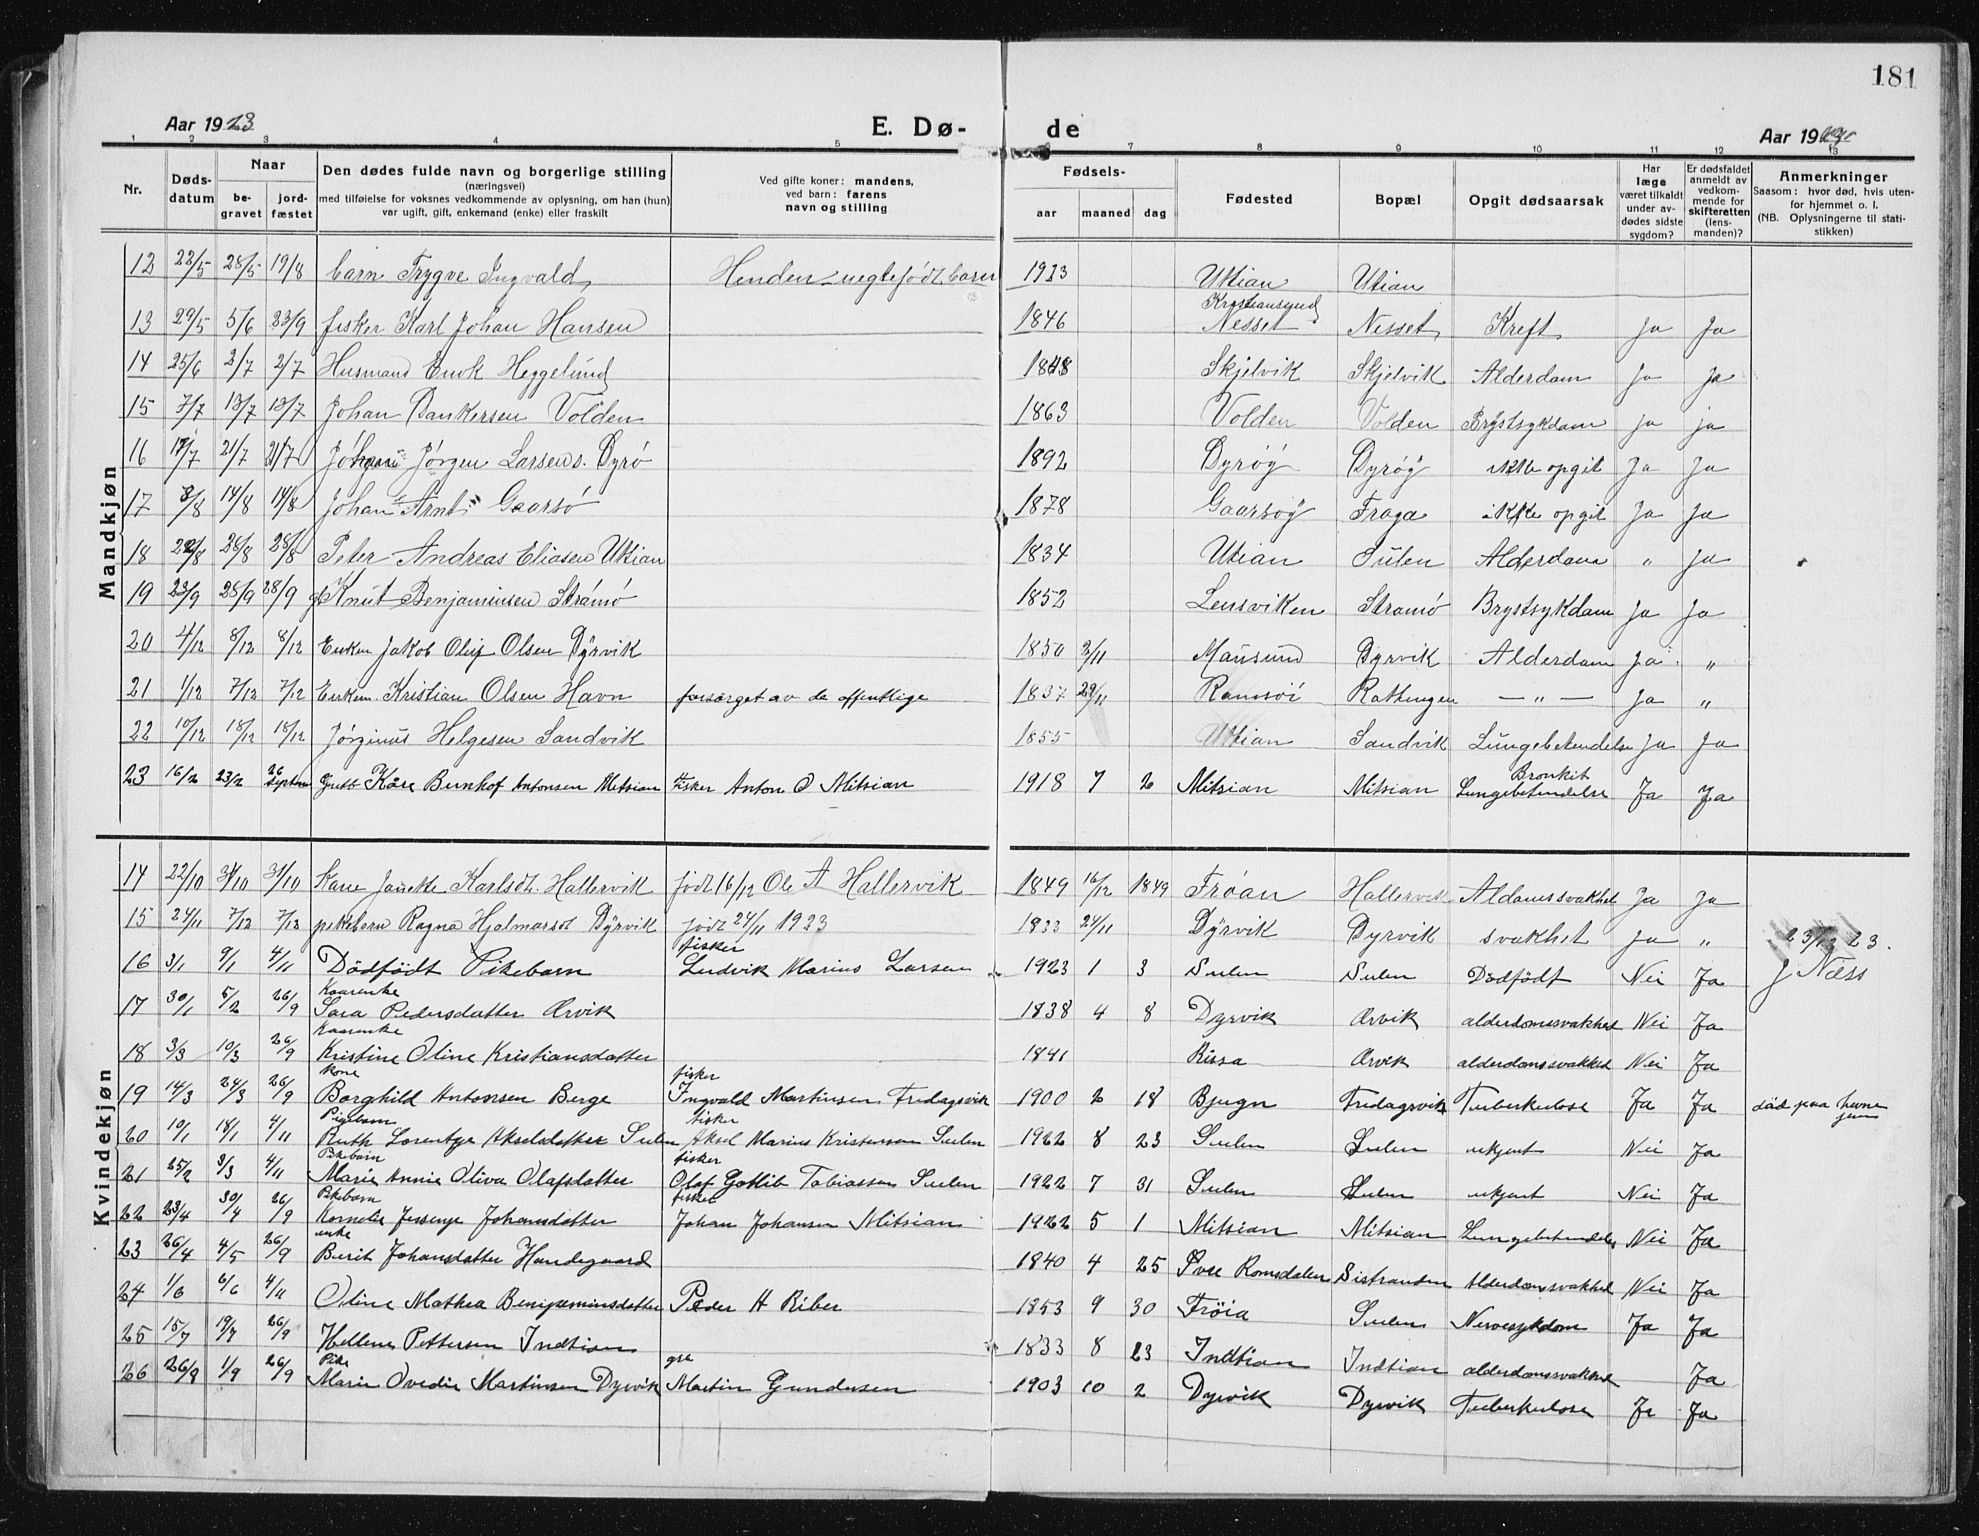 181
Aar 1923
E. Dø-
de
Aar 19
1 2 3 4 5 6 7 8 9 10 11 12 13
Nr.
Døds-datum
Naar
be-gravet
jord-fæstet
Den dødes fulde navn og borgerlige stilling
(næringsvei)
med tilføielse for voksnes vedkommende av oplysning, om han (hun)
var ugift, gift, enkemand (enke) eller fraskilt
Ved gifte koner: mandens,
ved barn: farens
navn og stilling
Fødsels-
aar maaned dag
Fødested
Bopæl
Opgit dødsaarsak
Har læge været tilkaldt under av-dødes sidste sygdom?
Er dødsfaldet anmeldt av vedkom-mende for skifteretten (lens-manden)?
Anmerkninger
Saasom: hvor død, hvis uten-for hjemmet o. l.
(NB. Oplysningerne til stati-stikken)
Mandkjøn
12 22/5 28/5 19/8 barn Trygve Ingvald 1923 Utian Utian
13 29/5 5/6 23/9 fisker Karl Johan Hansen 1846 Kristiansund Nesset Nesset Kreft Ja Ja
14 25/6 2/7 2/7 Husmand Enok Heggelund 1848 Skjelvik Skjelvik Alderdam Ja Ja
15 7/7 13/7 13/7 Johan Bankersen Volden 1863 Volden Volden Brystsykdam Ja ja
16 17/7 21/7 21/7 Jörgen Larsen Dyrö 1892 Dyröy Dyröy ikke opgit Ja Ja
17 8/8 14/8 14/8 Johan Arnt Gaarsö 1878 Gaarsöy Fraga ikke opgit Ja Ja
18 22/8 28/8 28/8 Peter Andreas Eliasen Utian 1834 Utian Sulen Alderdam " Ja
19 23/9 28/9 28/9 Knut Benjaminsen Strömö 1852 Lensviken Stramö Brystsykdam Ja Ja
20 4/12 8/12 8/12 Enkem Jakob Oluf Olsen Dyrvik 1850 2/11 Mausund Dyrvik Alderdam Ja "
21 1/12 7/12 7/12 Enkem. Kristian Olsen Havn forsörget av de offentlige 1837 29/11 Ramsöi Rottingen — " — Ja "
22 10/12 18/12 18/12 Jörginus Helgesen Sandvik 1855 Utian Sandvik Lungebetendelse Ja Ja
23 16/2 23/2 26 Septem Gutt Kåre Bernhof Antonsen Mitsian fisker Anton O Mitsian 1918 7 2 Mitsian Mitsian Bronkit Lungebetendelse Ja Ja
Kvindekjøn
14 22/10 31/10 31/10 Kane Janette Karlsdt. Hallervik född 16/12 Ole A Hallervik 1849 16/12 1849 Fröan Hallervik Aldomssvakhet Ja Ja
15 24/11 7/12 7/12 pikebarn Ragna Hjalmarsdt Dyrvik född 24/11 1923 1923 24/11 Dyrvik Dyrvik svakhet Ja " 23/12 23.
J Næss
16 3/1 9/1 4/11 Dödfödt Pikebarn fisker Ludvik Marius Larsen 1923 1 3 Sulen Sulen Dödfödt Nei Ja
17 30/1 5/2 26/9 Kaarenke Sara Pedersdatter Ørvik 1838 4 8 Dyrvik Ørvik alderdomssvakhet Nei Ja
18 3/3 10/3 26/9 Kaarenke Kristine Oline Kristiansdatter 1841 Rissa Ørvik alderdomssvakhet Nei Ja
19 14/3 24/3 26/9 kone Borghild Antonsen Berge fisker Ingvald Martinsen Fredagsvik 1900 2 18 Bjugn Fredagsvik Tuberkulose Ja Ja död paa
20 10/1 18/1 4/11 Pigebarn Ruth Lorentze Akselsdatter Sulen fisker Aksel Marius Kristensen Sulen 1922 8 23 Sulen Sulen ukjent Nei Ja
21 25/2 3/3 4/11 Pikebarn Marie Annie Oliva Olafsdatter fisker Olaf Gotlib Tobiassen Sulen 1922 7 31 Sulen Sulen ukjent Nei Ja
22 23/4 30/4 26/9 Pikebarn Kornelie Jessenje Johansdatter fisker Johan Johansen Mitsian 1922 5 1 Mitsian Mitsian Lungebetendelse Nei Ja
23 26/4 4/5 26/9 enke Berit Johansdatter Handegaard 1840 4 25 Romsdalen Sistranden Alderdomssvakhet Nei Ja
24 1/6 6/6 4/11 Oline Mathea Benjaminsdatter Peder H Riber 1853 9 30 Fröia Sulen Nervesykdom Ja Ja
25 15/7 19/7 26/9 Hellene Pettersen Indtian 1833 8 23 Indtian Indtian alderdomssvakhet Ja
26 26/8 1/9 26/9 Pike Marie Ovedie Martinsen Dyrvik Martin Gundersen 1903 10 2 Dyrvik Dyrvik Tuberkulose Ja Ja